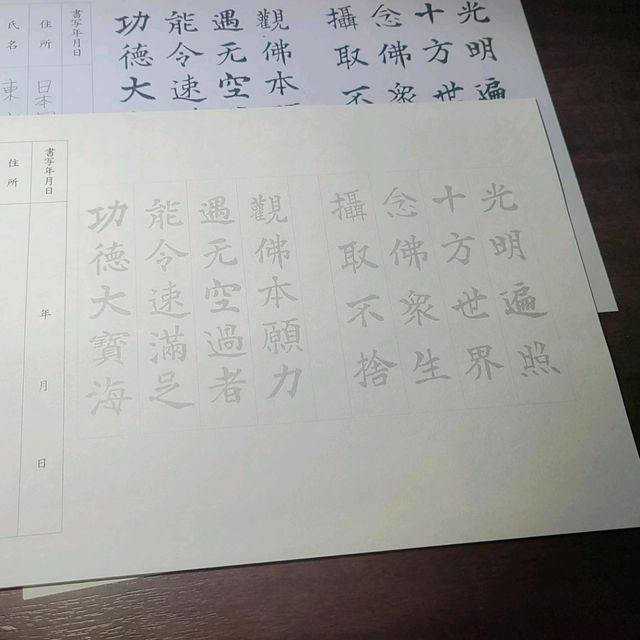 光明遍
十方世
念佛衆
攝取不
觀佛本
遇无空
能令速
功德大
書写年月日
住所
日本
氏名
東
光明遍照
十方世界
念佛衆生
攝取不捨
觀佛本願力
遇无空過者
能令速滿足
功德大寶海
書写年月日
年月日
住所